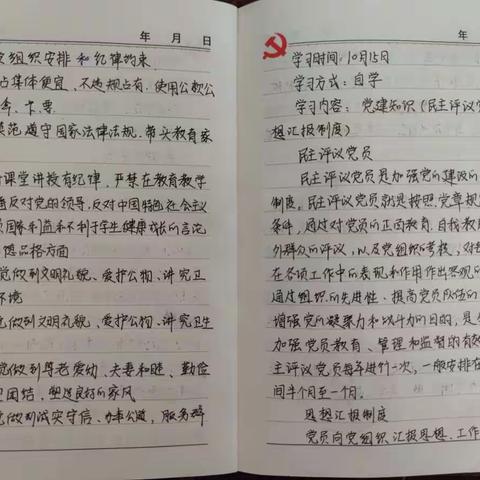 年 月 日
组织安排和纪律约束
占集体便宜、不违规占有、使用公款公
券、卡、票
模范遵守国家法律法规、带头教育家
课堂讲授有纪律，严禁在教育教学
反对党的领导、反对中国特色社会主义
国家利益和不利于学生健康成长的言论
品格方面
做到文明礼貌、爱护公物、讲究卫
环境
做到文明礼貌、爱护公物、讲究卫生
做到尊老爱幼、夫妻和睦、勤俭
团结，塑造良好的家风
做到诚实守信、办事公道，服务群
年
学习时间：10月15日
学习方式：自学
学习内容：党建知识（民主评议党
想汇报制度）
民主评议党员
民主评议党员是加强党的建设的
制度。民主评议党员就是按照党章规
条件，通过对党员的正面教育、自我教育
外群众的评议，以及党组织的考核，对
在各项工作中的表现和作用作出客观的
通过组织的先进性、提高党员队伍的
增强党的凝聚力和战斗力的目的，是
加强党员教育、管理和监督的有效
主评议党员每年进行一次，一般安排在
间半个月至一个月。
思想汇报制度
党员向党组织汇报思想、工作